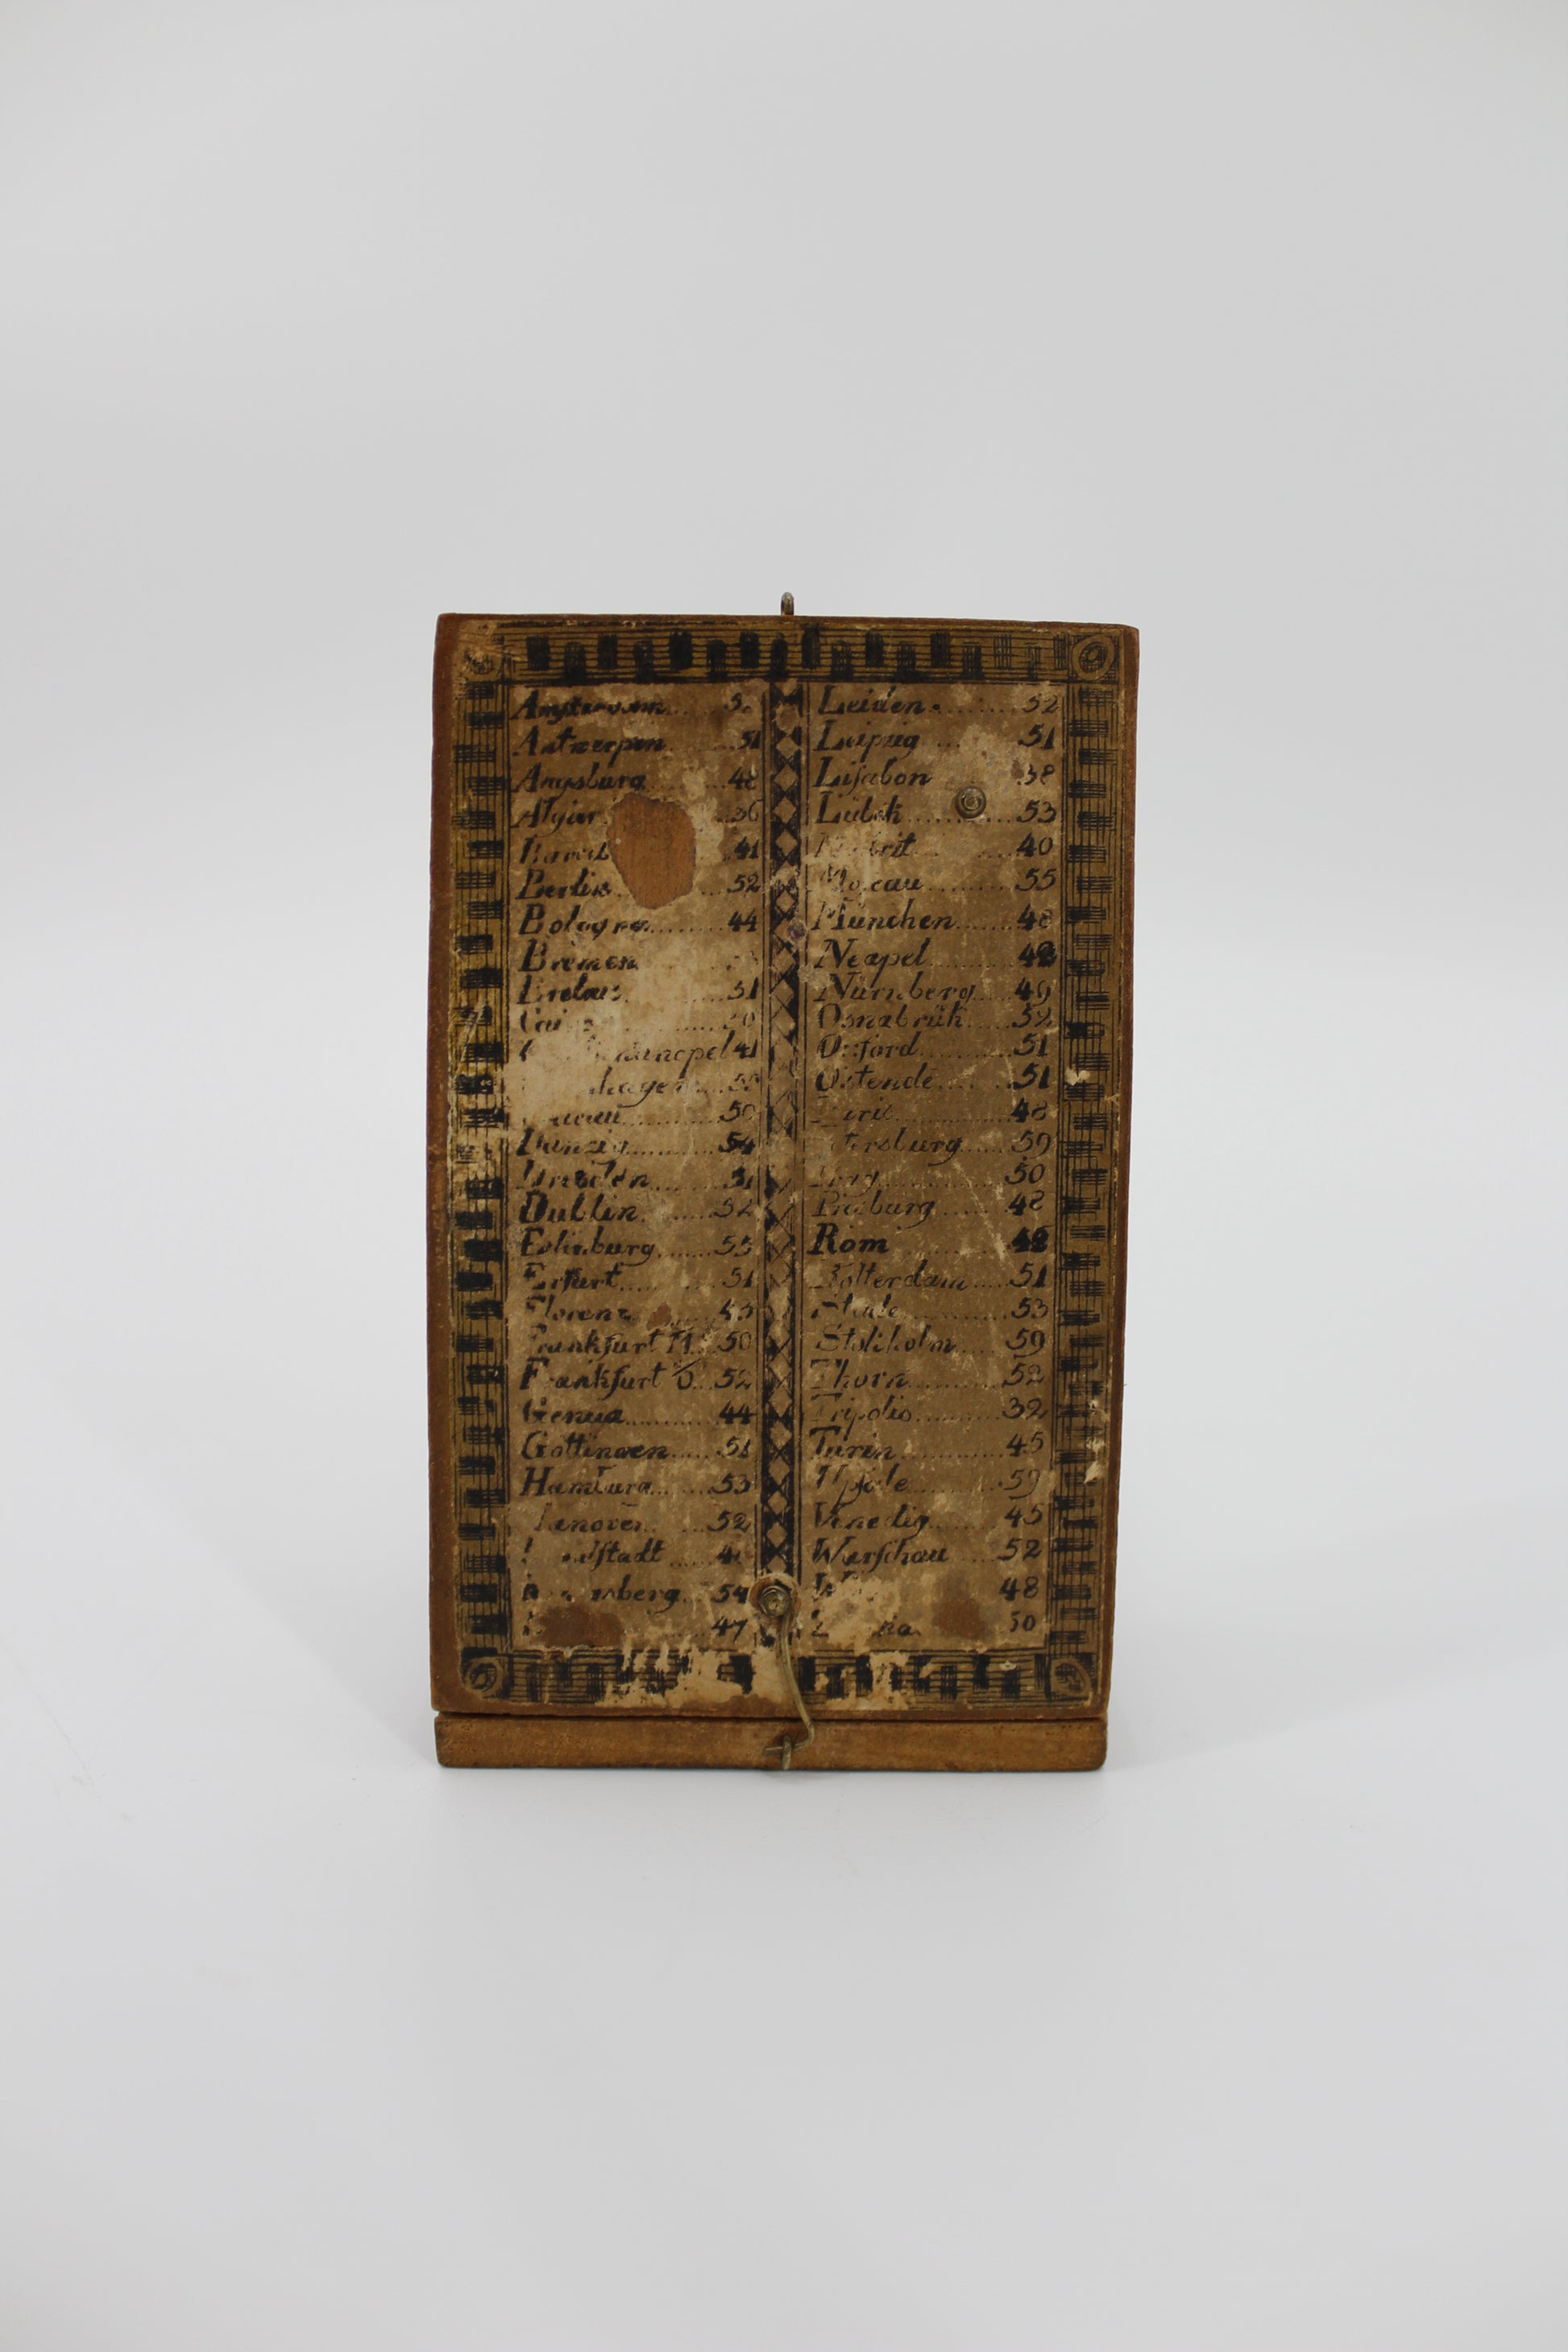 Amsterdam 5
Antwerpen 51
Augsburg 48
Algier 36
41
Berlin 52
Bologna 44
Bremen
Breslau 51
41
hagen
50
Danzig 54
Dresden 51
Dublin 52
Edinburg 55
Erfurt 51
Florenz 43
Frankfurt M. 50
Frankfurt O. 52
Genua 44
Gottingen 51
Hamburg 53
Hanover 52
stadt 4
sberg 54
47
Leiden 52
Leipzig 51
Lisabon 38
Lübek 53
40
Moscau 55
München 48
Neapel
Nürnberg 49
Osnabrük 52
Oxford 51
Ostende 51
48
Petersburg 59
Prag 50
Presburg 48
Rom 42
Rotterdam 51
53
Stokholm 59
Thorn 52
Tripolis 32
Turin 45
Upsale 59
Venedig 45
Warschau 52
48
50